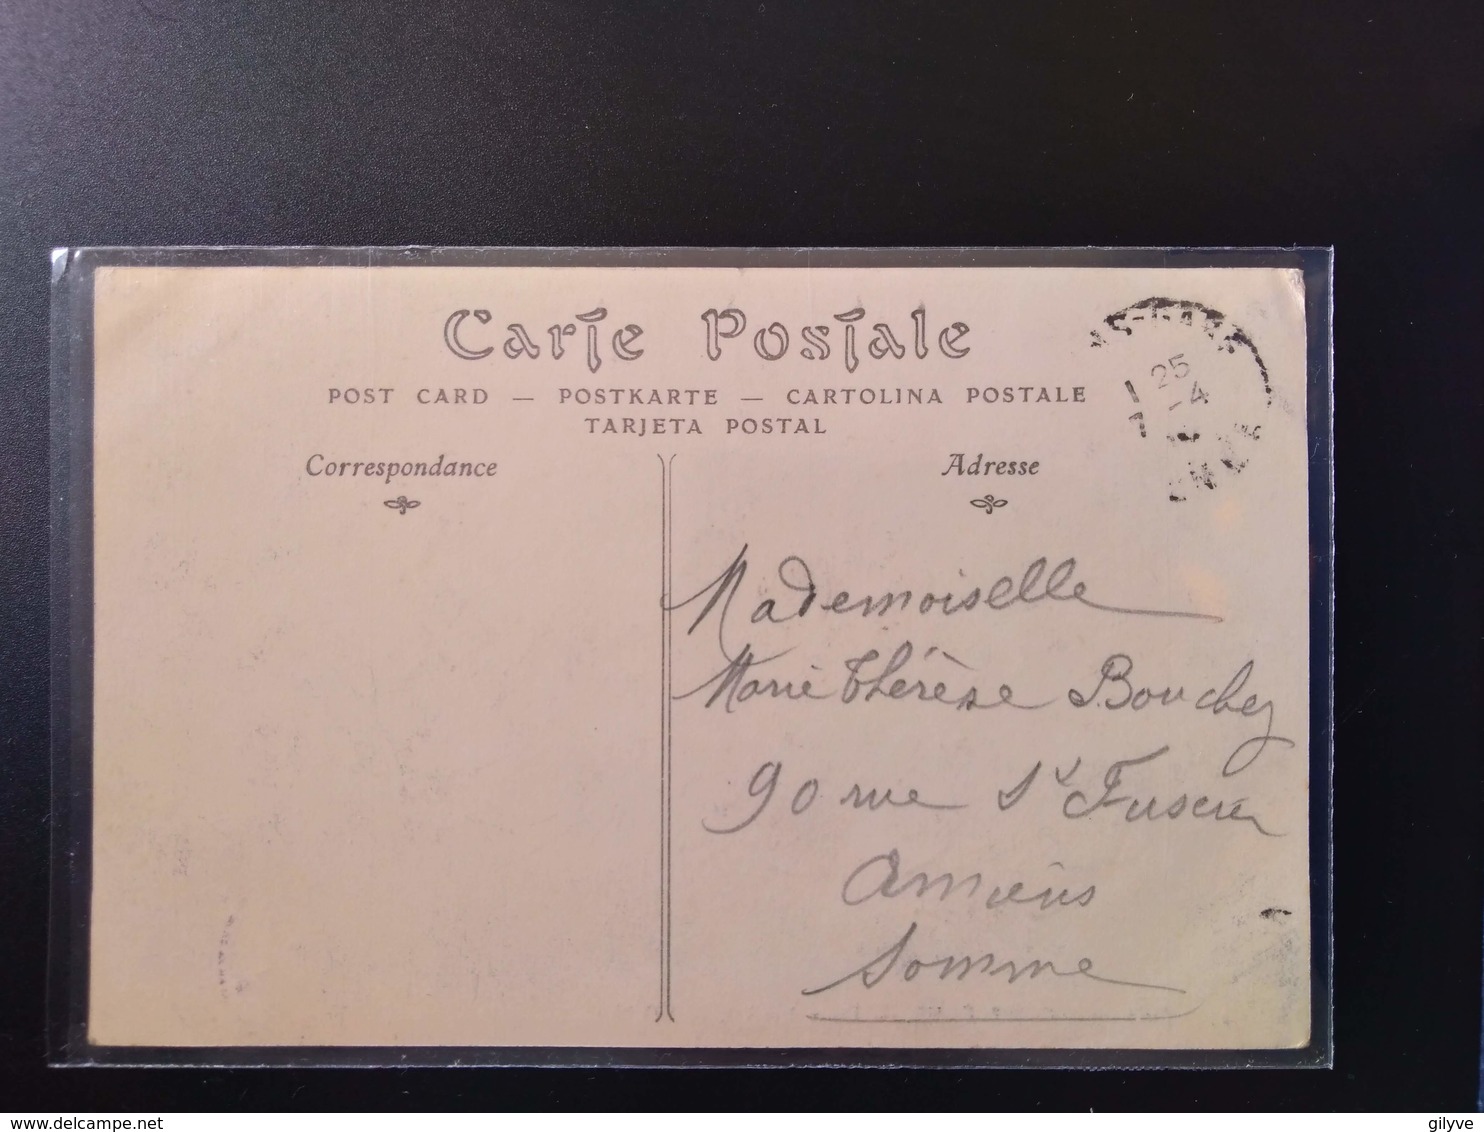 Carte Postale
POST CARD — POSTKARTE — CARTOLINA POSTALE
TARJETA POSTAL
Correspondance
Adresse
25
-4
Mademoiselle
Marie Thérèse Bouchez
90 rue St Fuscien
Amiens
Somme
delcampe.net
gilyve